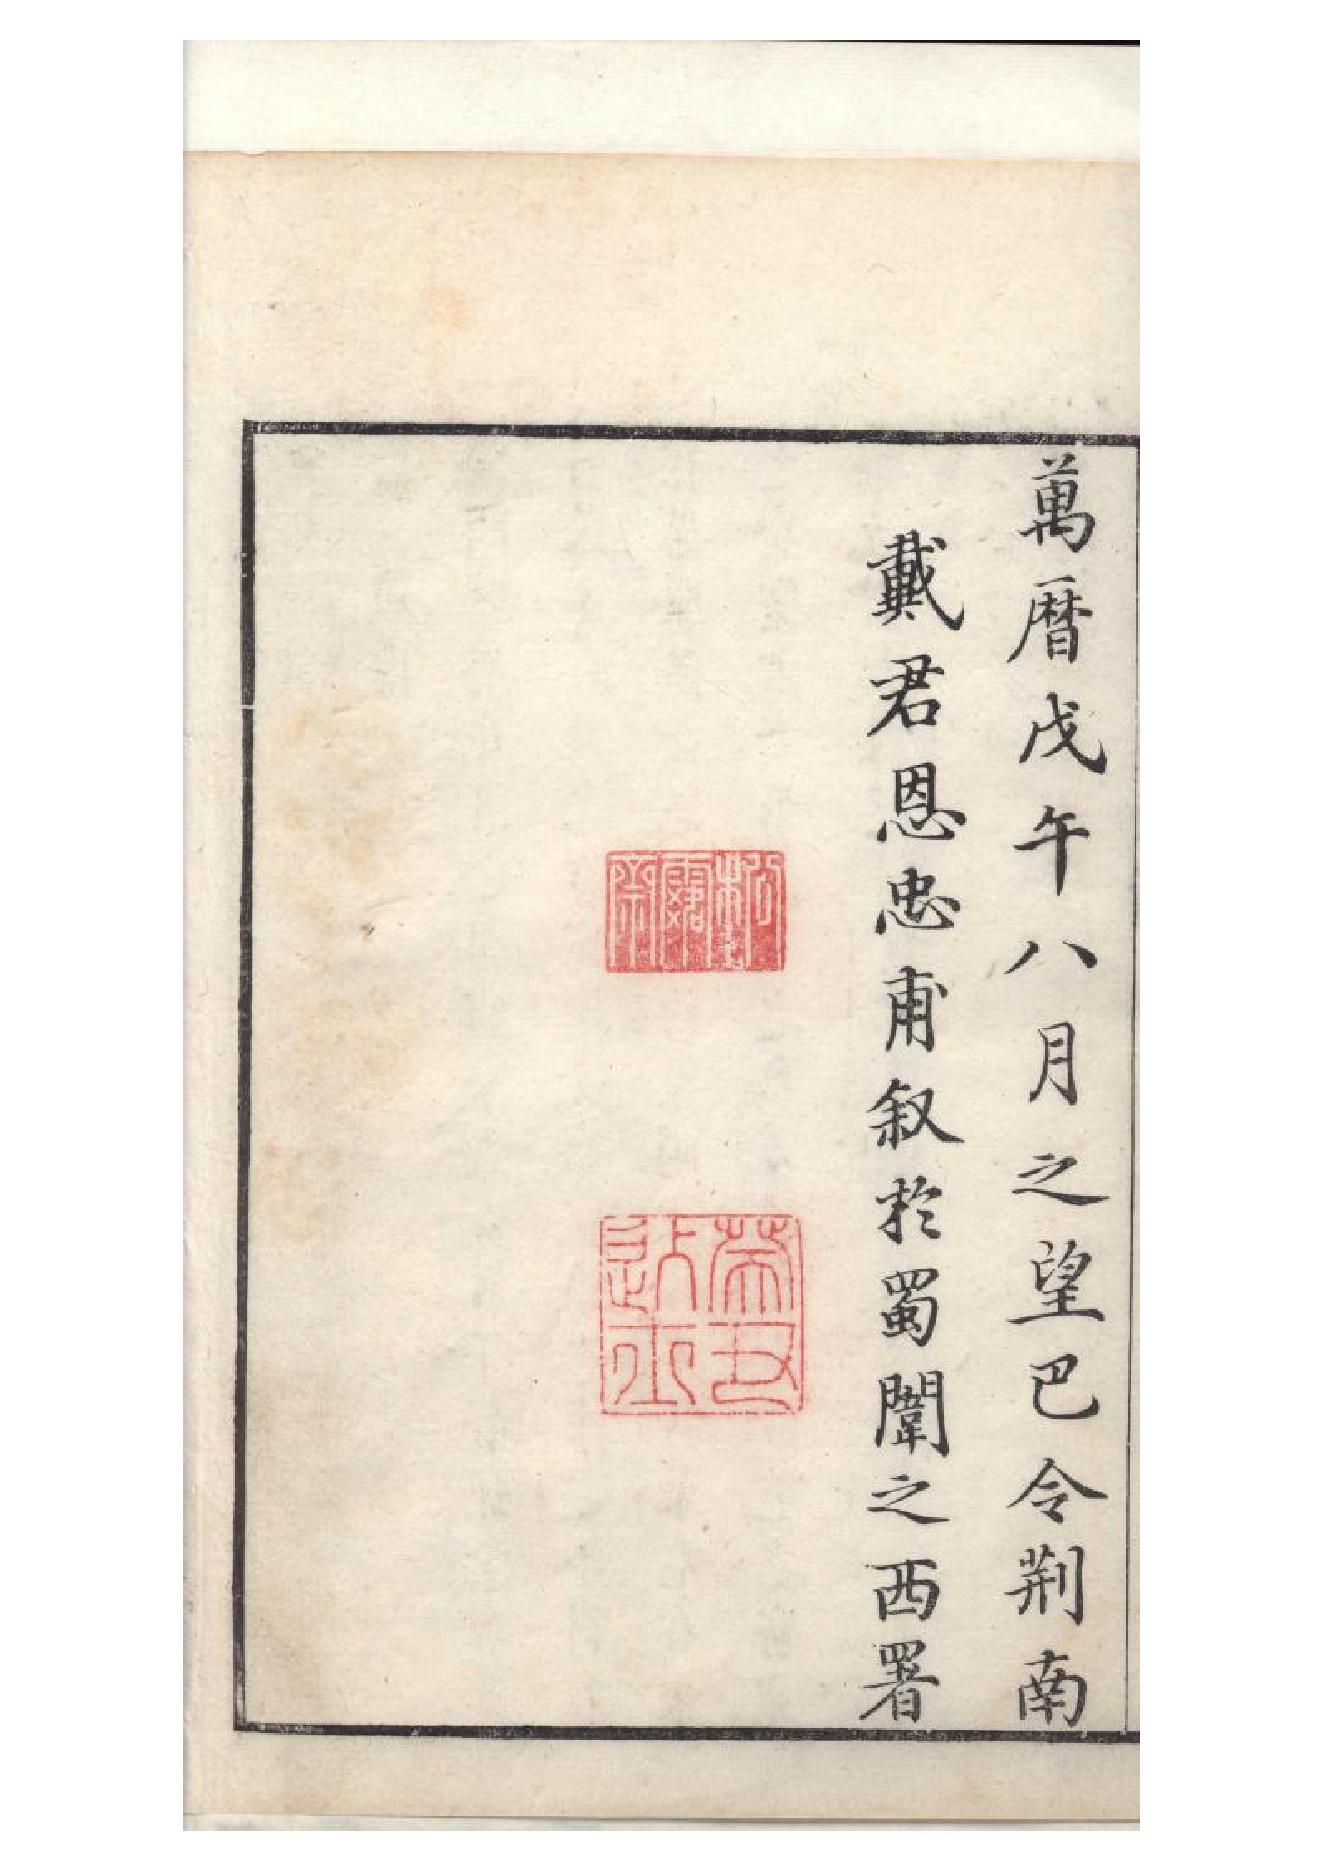 萬曆戊午八月之望巴令荆南
戴君恩忠甫叙於蜀闈之西署